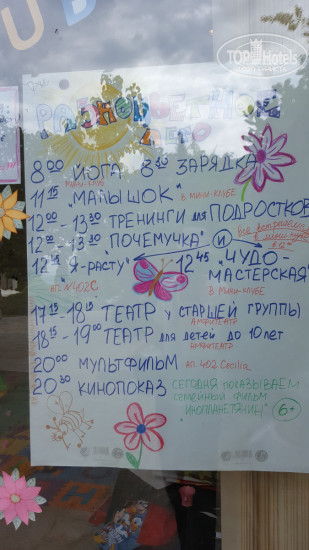 UB
TOPHotels
РАЗНОЦВЕТНОЕ
ЛЕТО
8 00 ЙОГА 8 40 ЗАРЯДКА
МИНИ-КЛУБ
11 15 "МАЛЫШОК" В МИНИ-КЛУБЕ
12 00 - 13 30 ТРЕНИНГИ для ПОДРОСТКОВ
12 00 - 13 30 "ПОЧЕМУЧКА" И
в мини-клубе
12 45 "Я-РАСТУ" 12 45 "ЧУДО-
МАСТЕРСКАЯ"
АП. №402C В МИНИ-КЛУБЕ
17 15 - 18 15 ТЕАТР У СТАРШЕЙ ГРУППЫ
АМФИТЕАТР
18 15 - 19 00 ТЕАТР для детей до 10 лет
АМФИТЕАТР
20 00 МУЛЬТФИЛЬМ АП. 402 Cecilia
20 30 КИНОПОКАЗ СЕГОДНЯ ПОКАЗЫВАЕМ
СЕМЕЙНЫЙ ФИЛЬМ
"ИНОПЛАНЕТЯНИН" 6+